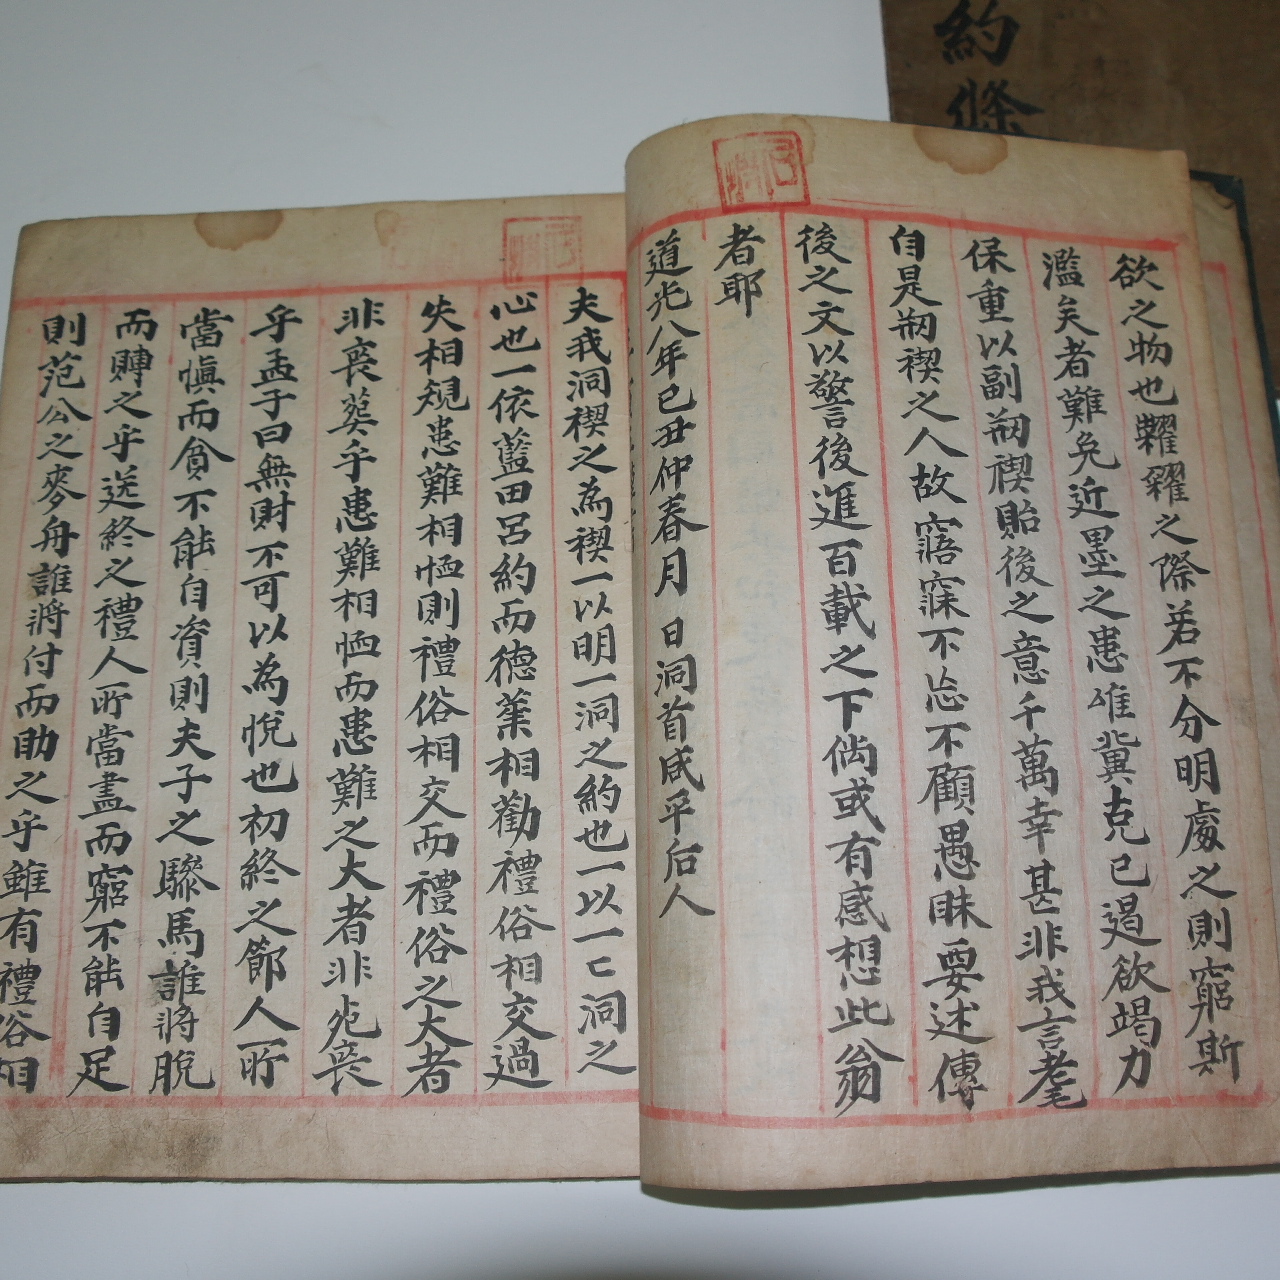 約條
欲之物也糶糴之際若不分明處之則窮斯
濫矣者難免近墨之患唯冀克已遏欲竭力
保重以副刱禊貽後之意千萬幸甚非我言耄
自是刱禊之人故寤寐不忘不顧愚昧要述傳
後之文以警後進百載之下倘或有感想此翁
者耶
道光八年已丑仲春月 日洞首咸平后人
夫我洞禊之為禊一以明一洞之約也一以一匕洞之
心也一依藍田呂約而德葉相勸禮俗相交過
失相規患難相恤則禮俗相交而禮俗之大者
非喪葬乎患難相恤而患難之大者非死喪
乎孟子曰無財不可以為悅也初終之節人所
當愼而貧不能自資則夫子之驂馬誰將脫
而賻之乎送終之禮人所當盡而窮不能自足
則范公之麥舟誰將付而助之乎雖有禮俗相